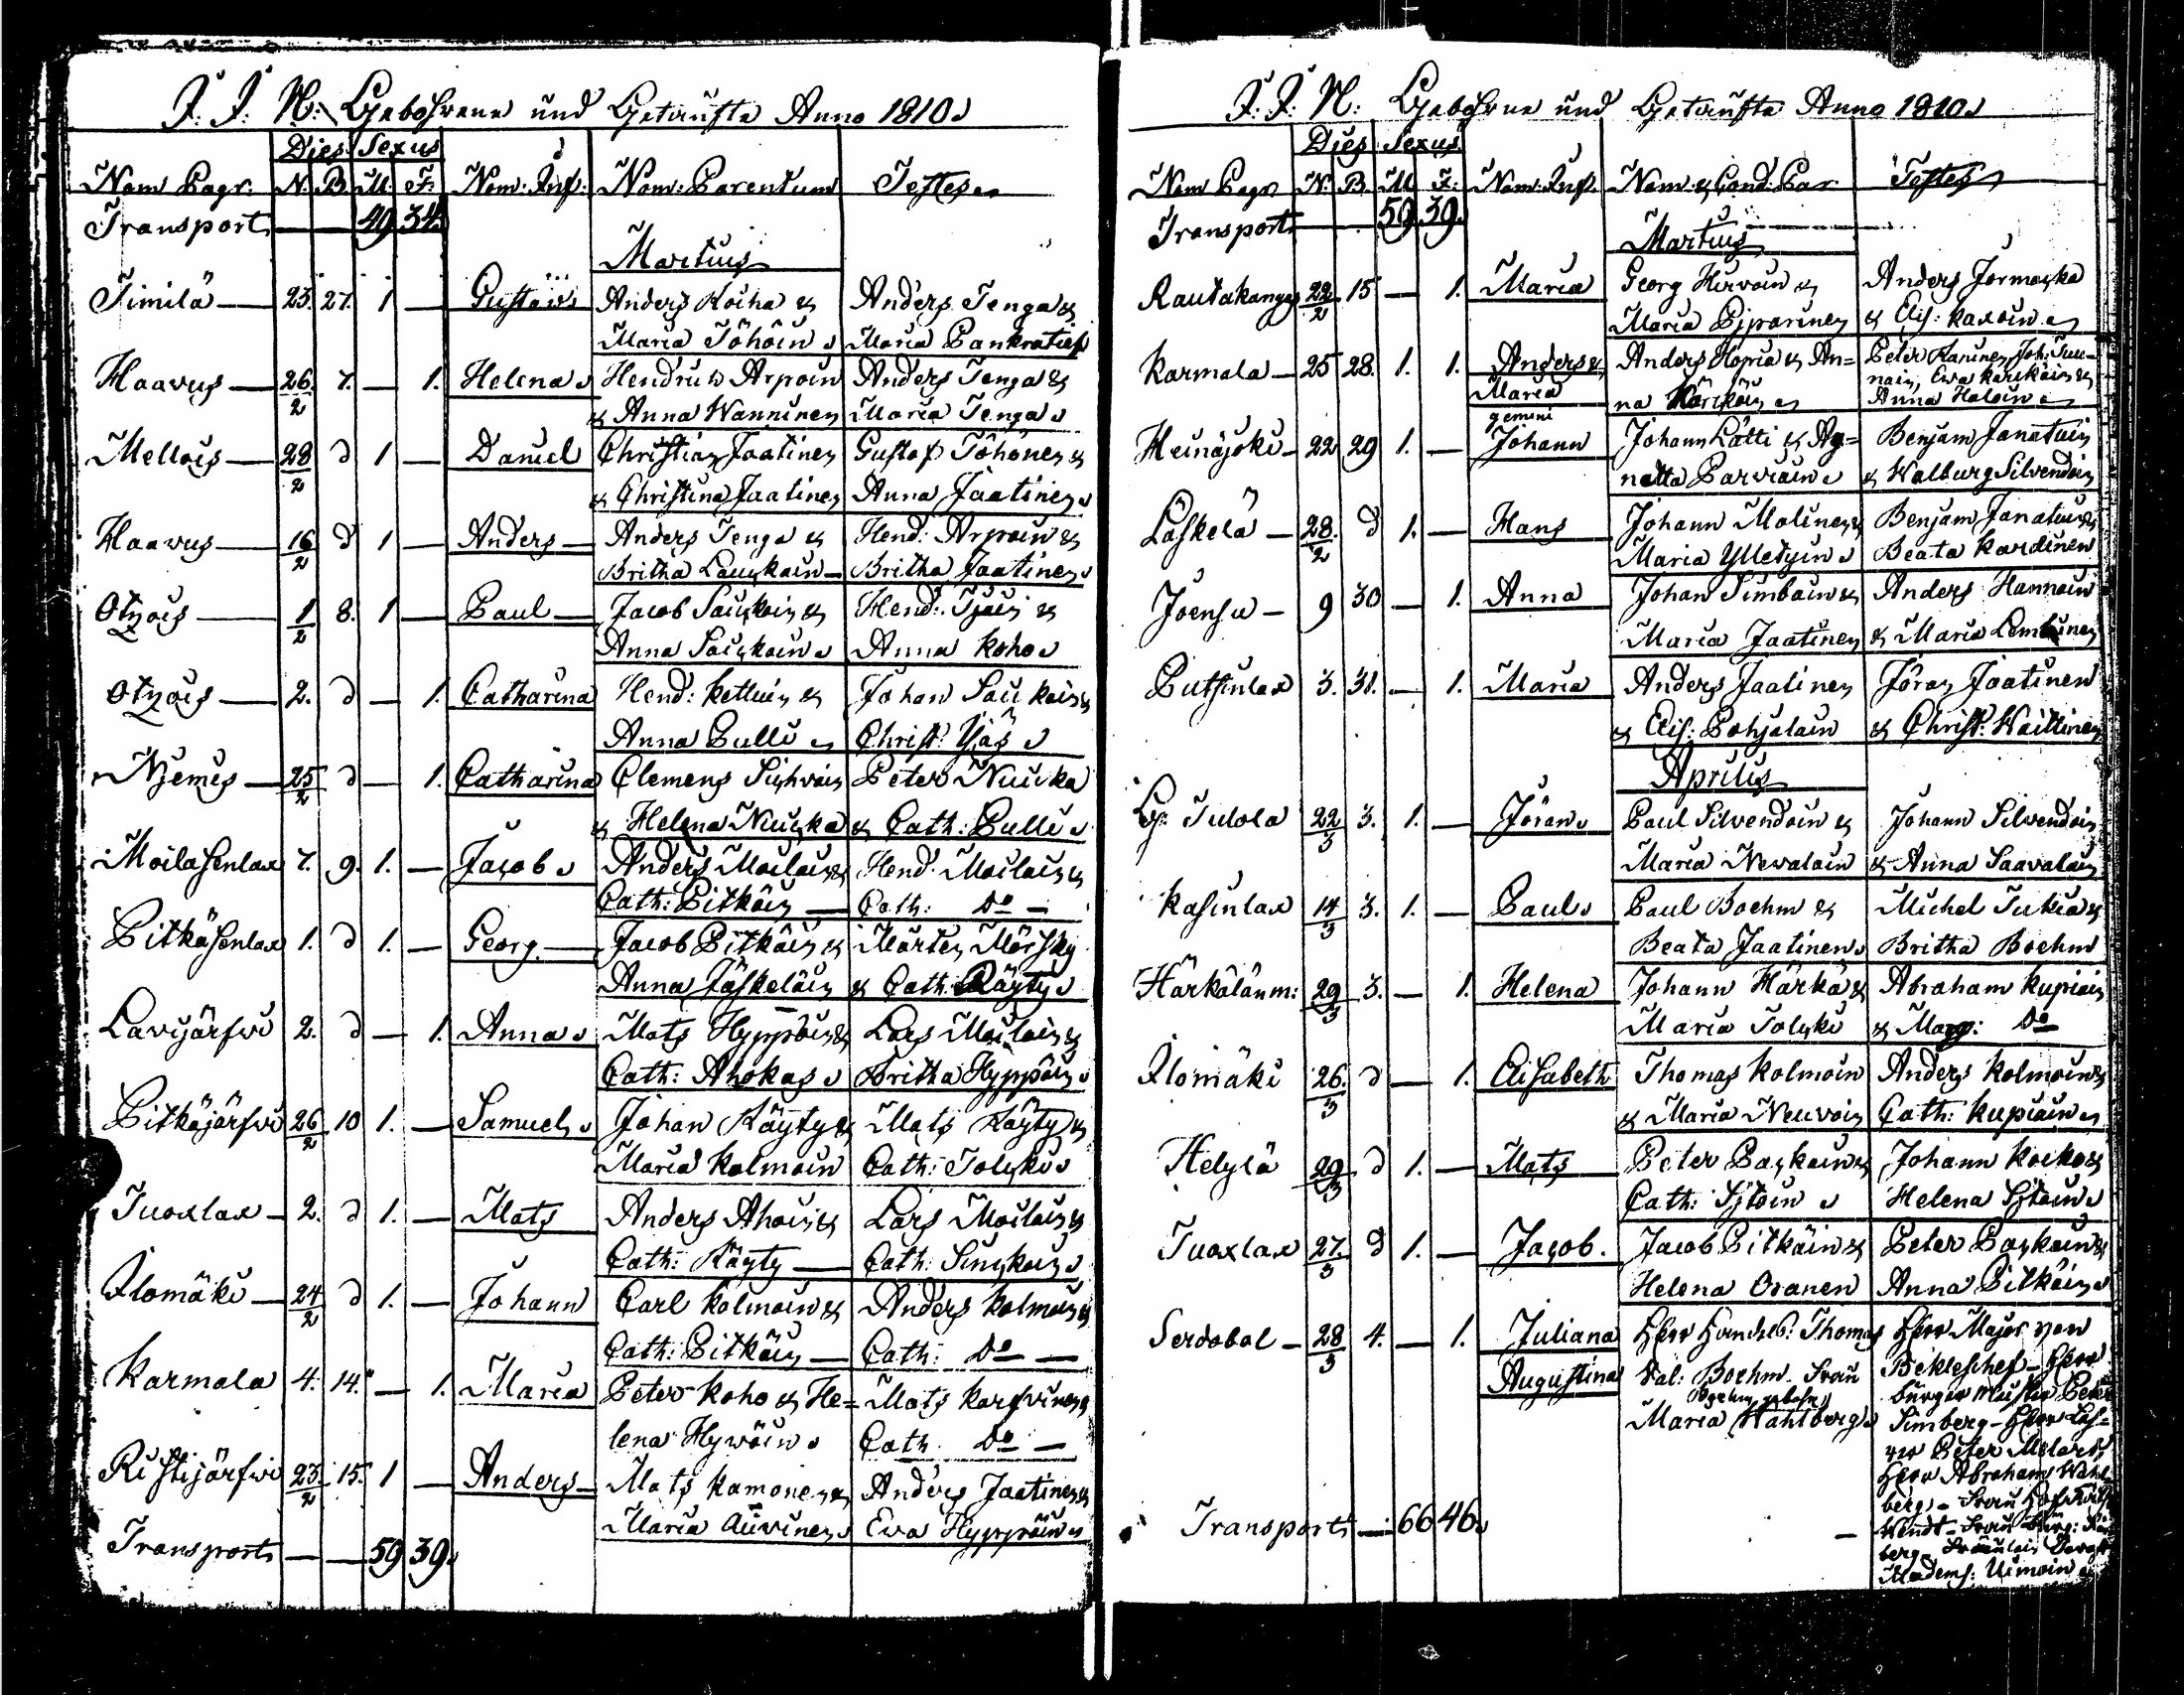 J. J. N: Gebohrene und Getaufte Anno 1810
Dies Sexus
Nom Pagr: N. B. M: F: Nom: Inf: Nom: Parentum Testes
Transport — — 49 34.
Martius
Timilä — 23. 27. 1 — Gustav Anders Koiha & Anders Tenga &
Maria Töhöin Maria Pankratief
Haavus — 26/2 7. — 1. Helena Hendrich Arpoin Anders Tenga &
& Anna Wanninen Maria Tenga
Mellois — 28/2 d 1 — Daniel Christian Jaatinen Gustaf Töhönen &
& Christina Jaatinen Anna Jaatinen
Haavus — 16/2 d 1 — Anders — Anders Tenga & Hend: Arpoin &
Britha Lauskain — Britha Jaatinen
Otzois — 1/2 8. 1 — Paul — Jacob Sauskain & Hend: &
Anna Sauskain Anna Koho
Otzois — 2. d — 1. Catharina Hend: Kettuin & Johan Sau kain &
Anna Pulli Christ:
Njemis — 25/2 d — 1. Catharina Clemens Sichvoin Peter Nuicka
& Helena Nuicka & Cath: Pulli
Moilasenlax 7. 9. 1. — Jacob Anders Moilain & Hend: Moilain &
Cath: Pitkäin — Cath: Do —
Pitkäsenlax 1. d 1. — Georg — Jacob Pitkäin & Mårten Mörsky
Anna Jäskeläin & Cath: Räyty
Lavijärfvi 2. d — 1. Anna Mats Hyppöin & Lars Moilain &
Cath: Ahokas Britha Hyppöin
Pitkäjärfvi 26/2 10 1. — Samuel Johan Räyty & Mats Räyty &
Maria Kolmoin Cath: Tolski
Tuoxlax — 2. d 1. — Mats Anders Ahoin & Lars Moilain &
Cath: Räyty — Cath: Sinskain
Ilomäki — 24/2 d 1. — Johann Carl Kolmoin & Anders Kolmoin &
Cath: Pitkäin — Cath: Do —
Karmala 4. 14. — 1. Maria Peter Koho & He= Mats Karfvinen &
lena Hyvöin Cath Do —
Ristijärfvi 23/2 15 1 — Anders — Mats Kamonen & Anders Jaatinen &
Maria Auvinen Eva Hyppöin
Transport — — 59 39.
J. J. N: Gebohrne und Getaufte Anno 1810
Dies Sexus
Nom Pagr N. B. M F: Nom: Inf: Nom: & Cond: Par Testes
Transport — 59. 39.
Martius
Rautakangas 22/2 15 — 1. Maria Georg Hirvoin & Anders Jormaska
Maria Pipariney & Elis: Kaxoin
Karmala — 25 28. 1. 1. Anders & Anders Hopia & An= Peter Karuinen, Joh: Tuu-
Maria na Kärikäin nain, Eva Karikäin &
gemini Anna Haloin
Heinäjoki — 22 29 1. — Johann Johann Lätti & Ag= Benjam Janatuin
netta Parviain & Walburg Silvendoin
Läskelä — 28/2 d 1. — Hans Johann Molinen & Benjam Janatuin &
Maria Ylletyin Beata Kardinen
Joensu — 9 30 — 1. Anna Johan Simboin & Anders Hannoin
Maria Jaatinen & Maria
Putsinlax 3. 31. — 1. Maria Anders Jaatinen Jöran Jaatinen
& Elis: Pohjalain & Christ: Waittinen
Aprilis
Tulola 22/3 3. 1. — Jöran Paul Silvendoin & Johann Silvendoin
Maria Nevalain & Anna Saavalain
Kasinlax 14/3 3. 1. — Paul Paul Boehm & Michel Tukia &
Beata Jaatinen Britha Boehm
Härkälänm: 29/3 3. — 1. Helena Johann Härkä & Abraham Kupiain
Maria Tolski & Marg: Do
Ilomäki 26./3 d — 1. Elisabeth Thomas Kolmoin Anders Kolmoin &
& Maria Neuvoin Cath: Kupiain
Helylä 29/3 d 1. — Mats Peter Paskain & Johann Koeko &
Cath: Sjtoin Helena Sjtoin
Tuoxlax 27./3 d 1. — Jacob. Jacob Pitkäin & Peter Paskain &
Helena Oranen Anna Pitkäin
Serdobol — 28/3 4. — 1. Juliana Herr Handels: Thomas Herr Major von
Augustina Val: Boehm. Frau Bekleschef — Herr
Boehm gebohr bürger meister Peter
Maria Wahlberg Simberg — Herr
Peter Melart
Herr Abraham Wahl
berg — Frau
Wendt — Frau
berg — Fräulein
Transport — 66 46. — Madems: Uimoin